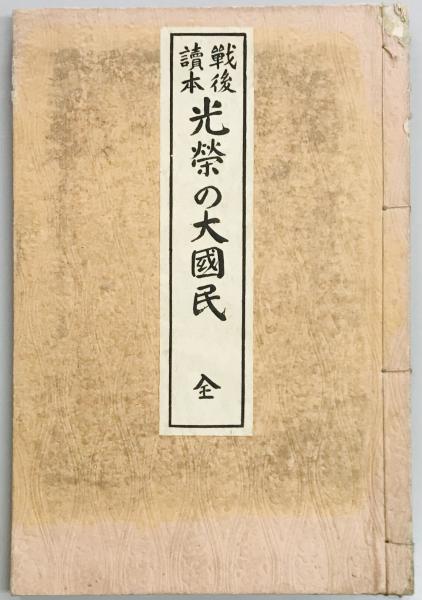 戰後
讀本
光榮の大國民
全